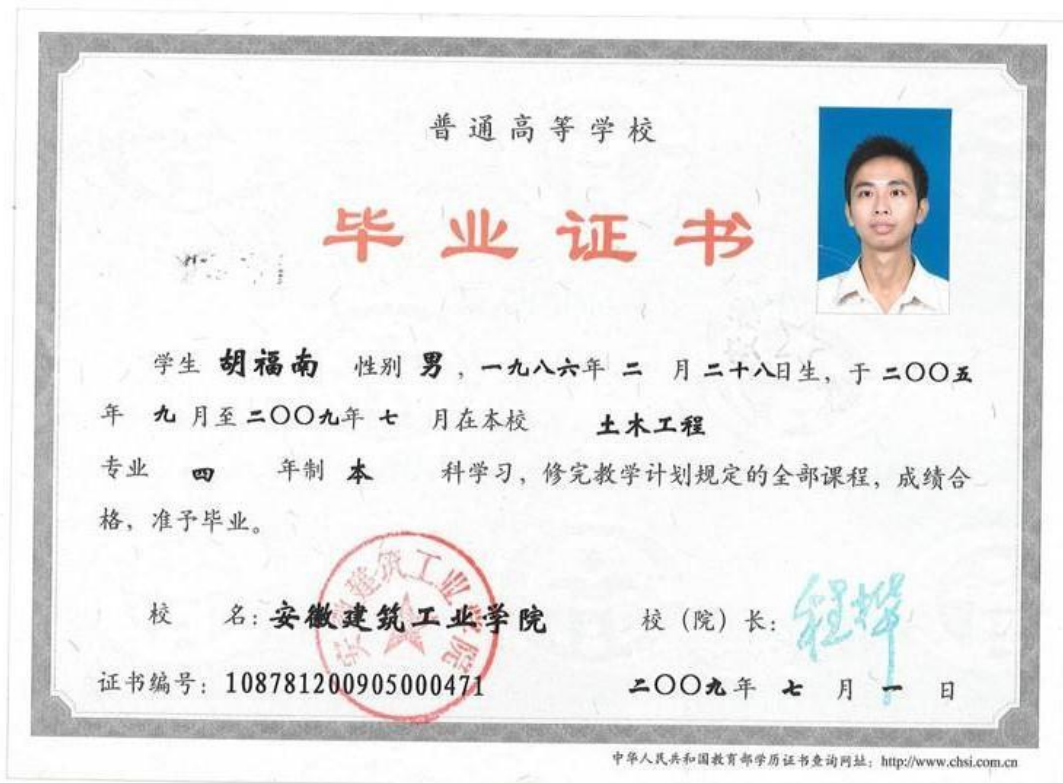 普通高等学校
毕业证书
学生 胡福南 性别 男，一九八六年 二 月 二十八日生，于 二〇〇五
年 九 月至 二〇〇九年 七 月在本校 土木工程
专业 四 年制 本 科学习，修完教学计划规定的全部课程，成绩合
格，准予毕业。
校 名：安徽建筑工业学院 校（院）长：程桦
安徽建筑工业学院
证书编号：108781200905000471 二〇〇九年 七 月 一 日
中华人民共和国教育部学历证书查询网址：http://www.chsi.com.cn